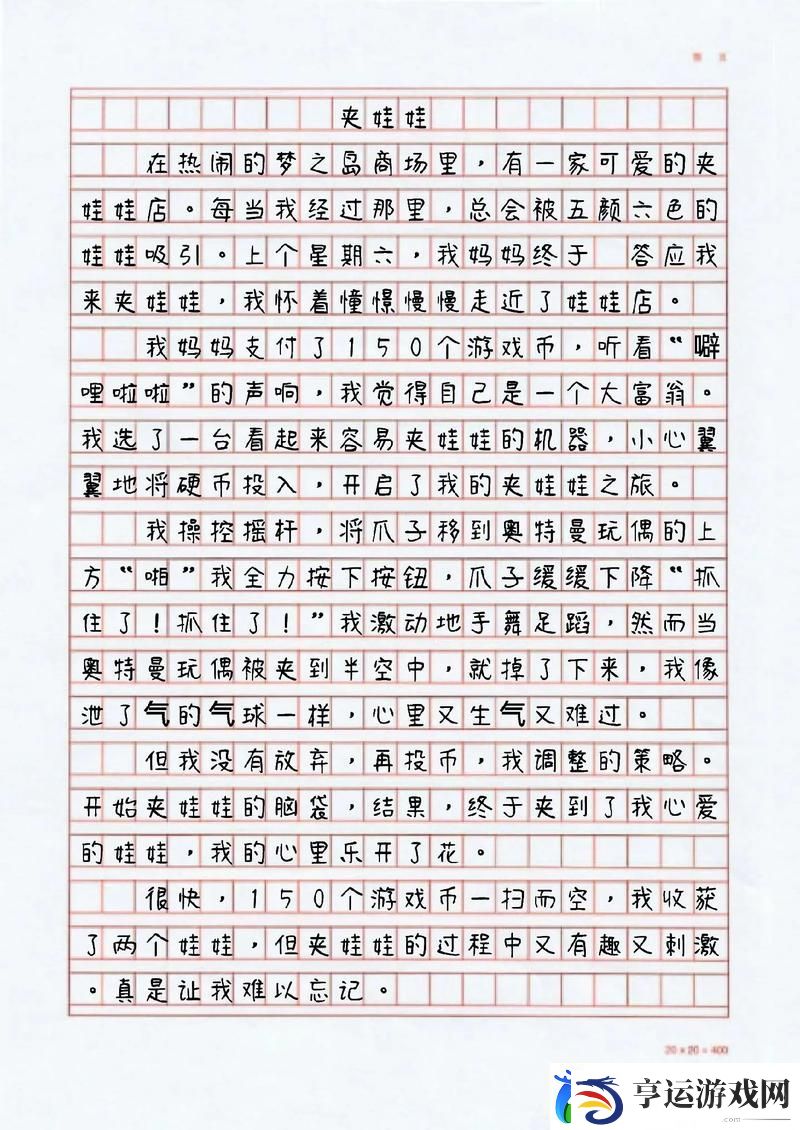 夹娃娃
在热闹的梦之岛商场里，有一家可爱的夹
娃娃店。每当我经过那里，总会被五颜六色的
娃娃吸引。上个星期六，我妈妈终于 答应我
来夹娃娃，我怀着憧憬慢慢走近了娃娃店。
我妈妈支付了150个游戏币，听着“噼
哩啦啦”的声响，我觉得自己是一个大富翁。
我选了一台看起来容易夹娃娃的机器，小心翼
翼地将硬币投入，开启了我的夹娃娃之旅。
我操控摇杆，将爪子移到奥特曼玩偶的上
方“啪”我全力按下按钮，爪子缓缓下降“抓
住了！抓住了！”我激动地手舞足蹈，然而当
奥特曼玩偶被夹到半空中，就掉了下来，我像
泄了气的气球一样，心里又生气又难过。
但我没有放弃，再投币，我调整的策略。
开始夹娃娃的脑袋，结果，终于夹到了我心爱
的娃娃，我的心里乐开了花。
很快，150个游戏币一扫而空，我收获
了两个娃娃，但夹娃娃的过程中又有趣又刺激
。真是让我难以忘记。
20×20=400
亨运游戏网